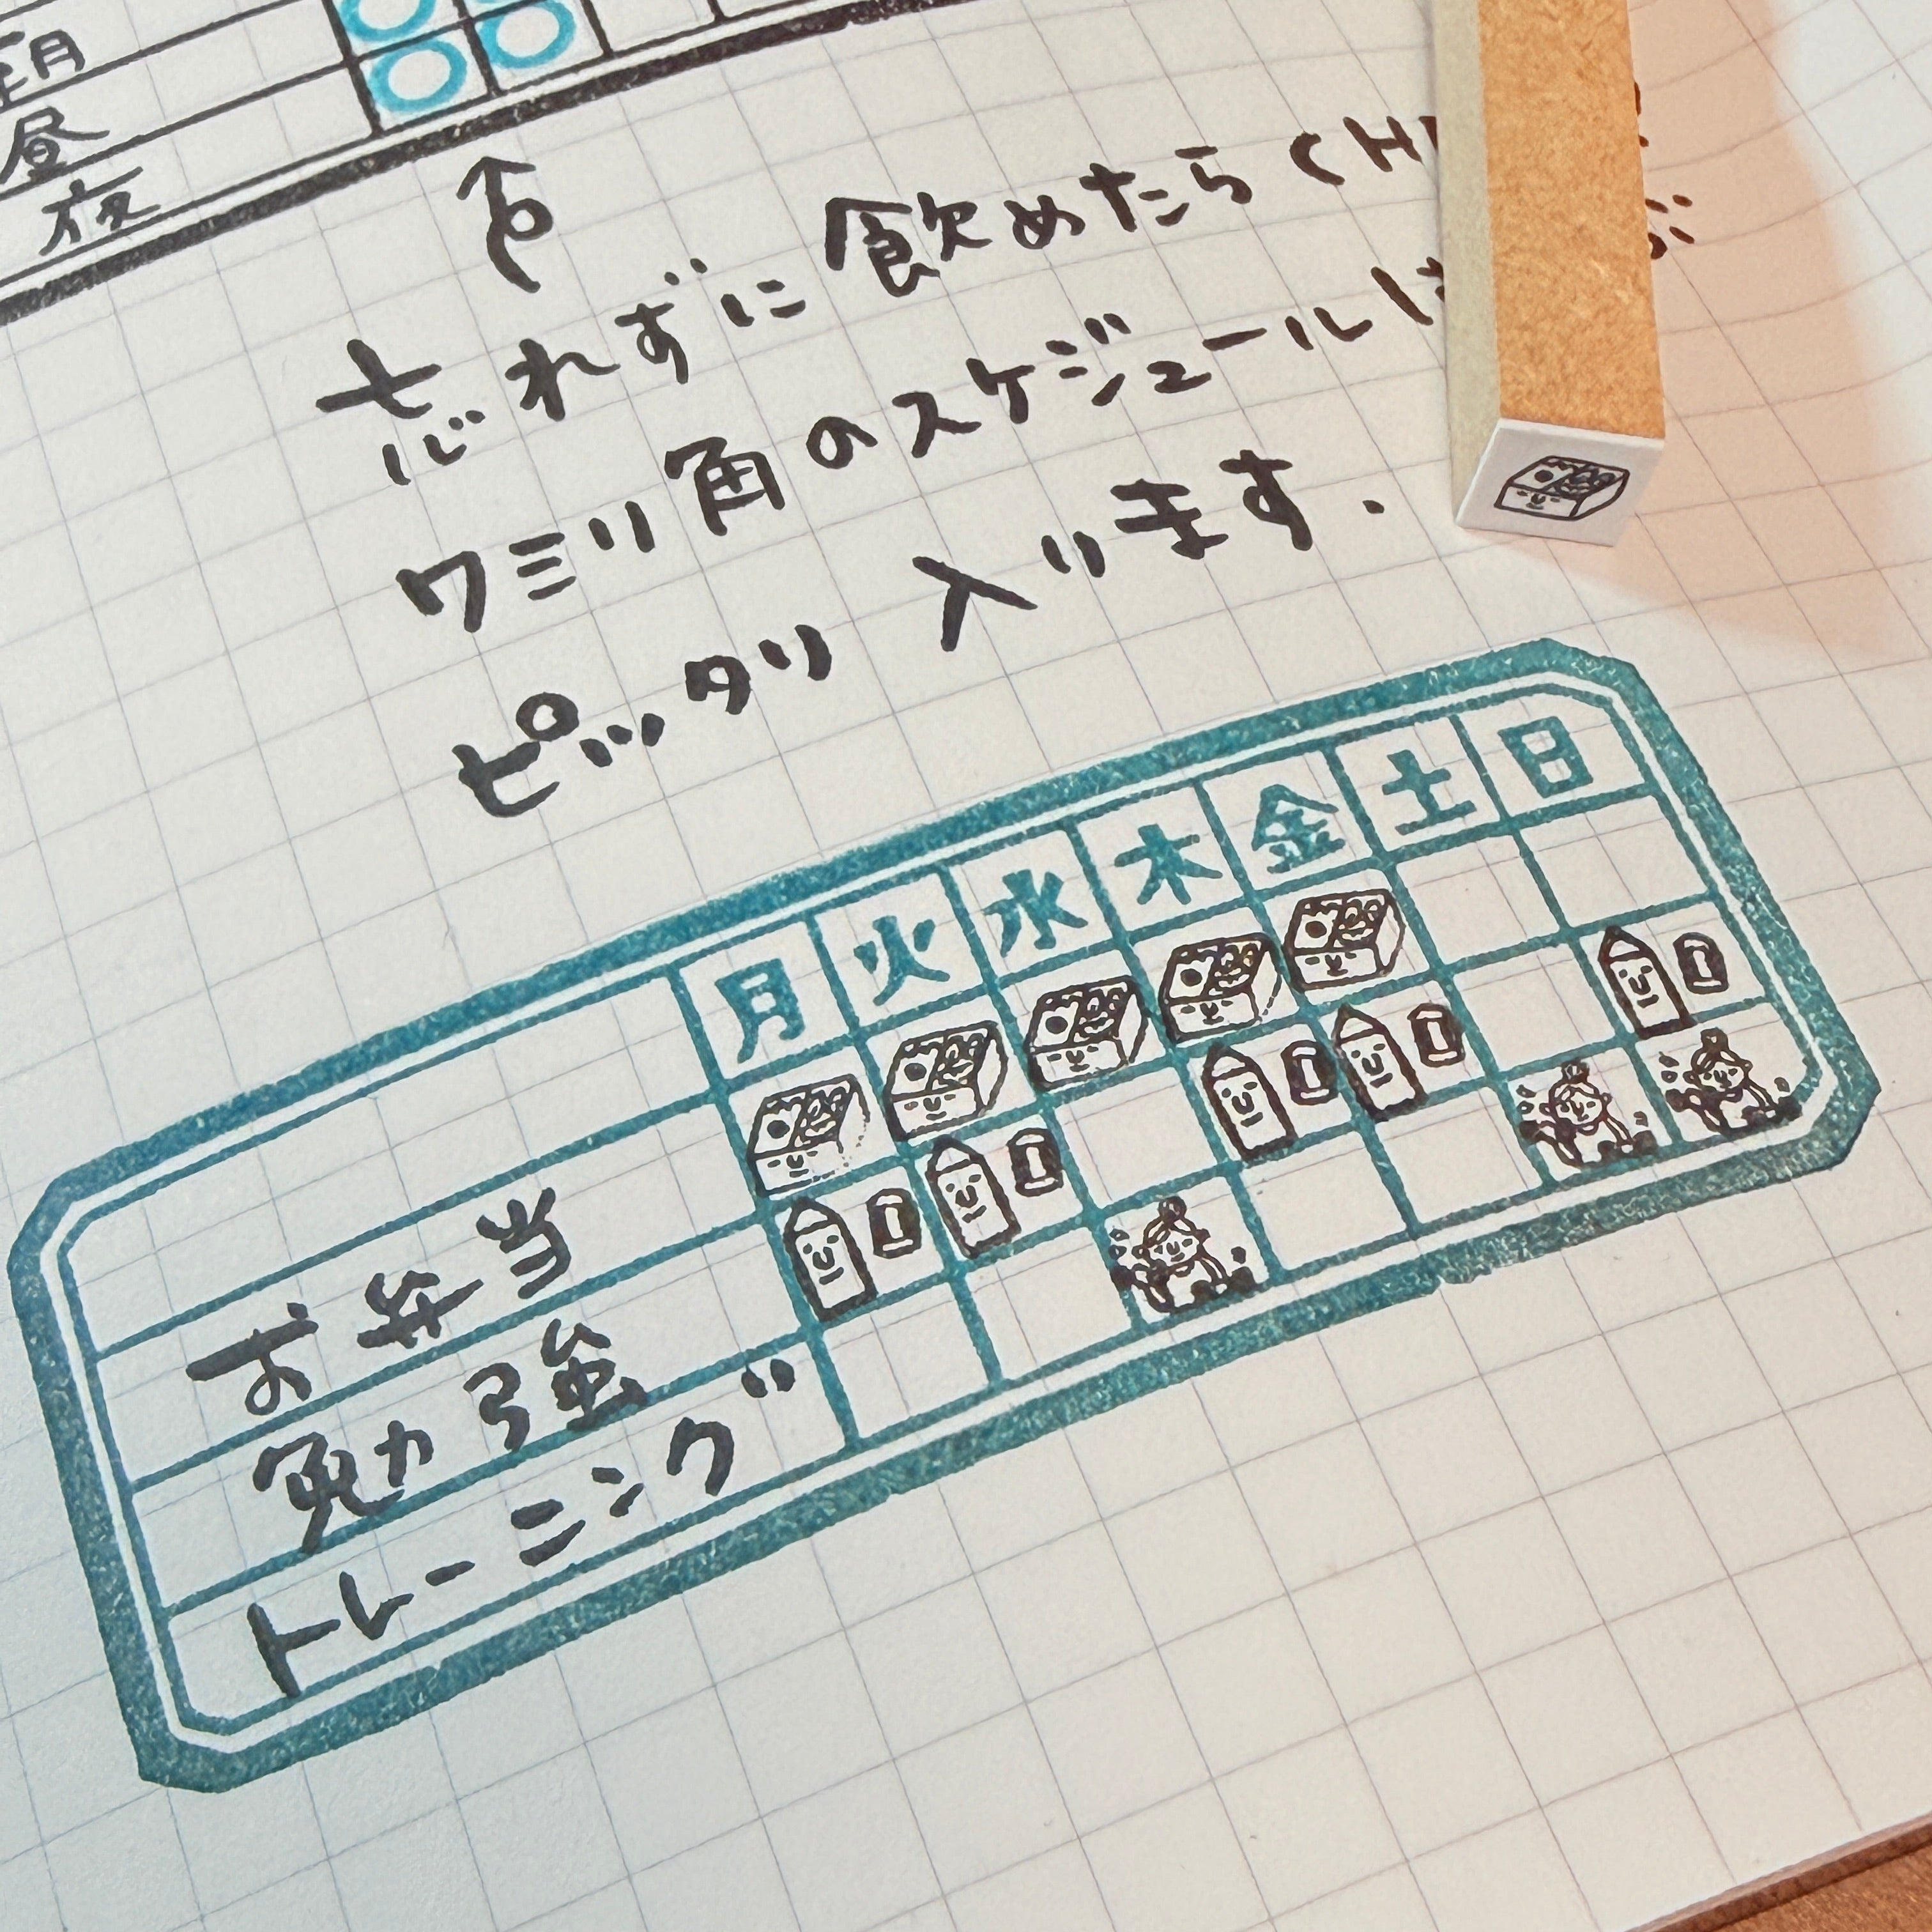 朝
昼
夜
忘れずに飲めたらCH
ワミリ角のスケジュール
ピッタリ入ります.
月 火 水 木 金 土 日
お弁当
勉強
トレーニング